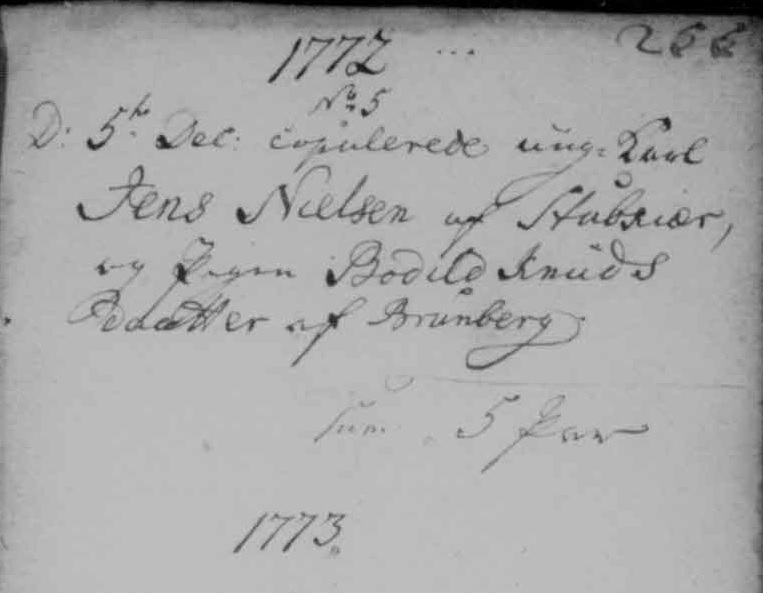 1772 ... 256
No 5
D: 5te Dec: copulerede ung-Karl
Jens Nielsen af Stubkiær,
og Pigen Bodild Knuds
Daatter af Brunberg
sum. 5 Par
1773.